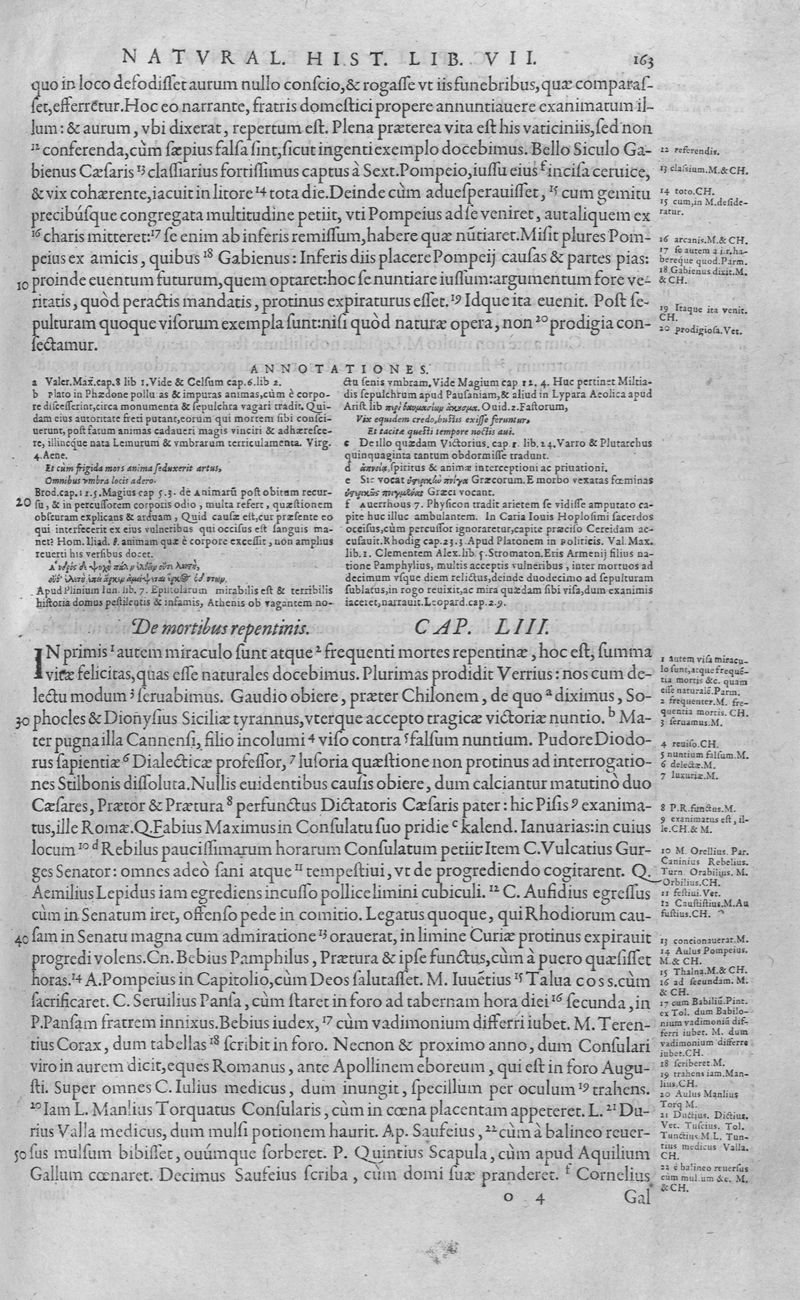 NATVRAL. HIST. LIB. VII. 163
quo in loco defodisset aurum nullo conscio,& rogasse vt iis funebribus, quæ comparas-
set,efferretur.Hoc eo narrante, fratris domestici propere annuntiauere exanimatum il-
lum: & aurum, vbi dixerat, repertum est. Plena præterea vita est his vaticiniis,sed non
12 conferenda,cùm sæpius falsa sint,sicut ingenti exemplo docebimus. Bello Siculo Ga-
bienus Cæsaris 13 classiarius fortissimus captus à Sext.Pompeio,iussu eius f incisa ceruice,
& vix cohærente,iacuit in litore 14 tota die.Deinde cùm aduesperauisset, 15 cum gemitu
precibúsque congregata multitudine petiit, vti Pompeius ad se veniret, aut aliquem ex
16 charis mitteret: 17 se enim ab inferis remissum,habere quæ nūtiaret.Misit plures Pom-
peius ex amicis, quibus 18 Gabienus: Inferis diis placere Pompeij causas & partes pias:
10 proinde euentum futurum,quem optaret:hoc se nuntiare iussum:argumentum fore ve-
ritatis, quòd peractis mandatis, protinus expiraturus esset. 19 Idque ita euenit. Post se-
pulturam quoque visorum exempla sunt:nisi quòd naturæ opera, non 20 prodigia con-
sectamur.
12 referendis.
13 classium.M.& CH.
14 toto.CH.
15 cum,in M.deside-
ratur.
16 arcanis.M.& CH.
17 se autem a i.r,ha-
bereque quod.Parm.
18 Gabienus dixit.M.
& CH.
19 Itaque ita venit.
CH.
20 prodigiosa.Vet.
ANNOTATIONES.
a Valer.Max.cap.8 lib 1.Vide & Celsum cap.6.lib 2.
b Plato in Phædone pollutas & impuras animas,cùm è corpo-
re discesserint,circa monumenta & sepulchra vagari tradit. Qui-
dam eius autoritate freti putant,eorum qui mortem sibi consci-
uerunt, post fatum animas cadaueri magis vinciri & adhæresce-
re, illincque nata Lemurum & vmbrarum terriculamenta. Virg.
4.Aene.
Et cùm frigida mors anima seduxerit artus,
Omnibus vmbra locis adero.
Brod.cap.11.5.Magius cap 5.3. de Animarū post obitum recur-
20 su, & in percussorem corporis odio, multa refert, quæstionem
obscuram explicans & arduam, Quid causæ est,cur præsente eo
qui interfecerit ex eius vulneribus qui occisus est sanguis ma-
net? Hom.Iliad. animam quæ è corpore excessit, non amplius
reuerti his versibus docet.
Apud Plinium Iun. lib. 7. Epistolarum mirabilis est & terribilis
historia domus pestilentis & infamis, Athenis ob vagantem no-
ctu senis vmbram.Vide Magium cap 12. 4. Huc pertinet Miltia-
dis sepulchrum apud Pausaniam,& aliud in Lypara Aeolica apud
Arist lib Ouid.2.Fastorum,
Vix equidem credo,bustis exisse feruntur,
Et tacitæ questi tempore noctis aui.
c De illo quædam Victorius, cap.1. lib. 24.Varro & Plutarchus
quinquaginta tantum obdormisse tradunt.
d spiritus & animæ interceptioni ac priuationi.
e Sic vocat Græcorum.E morbo vexatas fœminas
Græci vocant.
f Auerrhous 7. Physicon tradit arietem se vidisse amputato ca-
pite huc illuc ambulantem. In Caria Iouis Hoplosimi sacerdos
occisus,cùm percussor ignoraretur,capite præciso Cercidam ac-
cusauit.Rhodig cap.23.3. Apud Platonem in Politicis. Val. Max.
lib.1. Clementem Alex.lib 5.Stromaton.Eris Armenij filius na-
tione Pamphylius, multis acceptis vulneribus, inter mortuos ad
decimum vsque diem relictus,deinde duodecimo ad sepulturam
sublatus,in rogo reuixit,ac mira quædam sibi visa,dum exanimis
iaceret,narrauit.Leopard.cap.2.9.
De mortibus repentinis. CAP. LIII.
IN primis 1 autem miraculo sunt atque 2 frequenti mortes repentinæ, hoc est, summa
vitæ felicitas,quas esse naturales docebimus. Plurimas prodidit Verrius: nos cum de-
lectu modum 3 seruabimus. Gaudio obiere, præter Chilonem, de quo a diximus, So-
30 phocles & Dionysius Siciliæ tyrannus,vterque accepto tragicæ victoriæ nuntio. b Ma-
ter pugna illa Cannensi, filio incolumi 4 viso contra 5 falsum nuntium. Pudore Diodo-
rus sapientiæ 6 Dialecticæ professor, 7 lusoria quæstione non protinus ad interrogatio-
nes Stilbonis dissoluta.Nullis euidentibus causis obiere, dum calciantur matutino duo
Cæsares, Prætor & Prætura 8 perfunctus Dictatoris Cæsaris pater: hic Pisis 9 exanima-
tus,ille Romæ.Q.Fabius Maximus in Consulatu suo pridie c kalend. Ianuarias:in cuius
locum 10 d Rebilus paucissimarum horarum Consulatum petiit: Item C.Vulcatius Gur-
ges Senator: omnes adeò sani atque 11 tempestiui,vt de progrediendo cogitarent. Q.
Aemilius Lepidus iam egrediens incusso pollice limini cubiculi. 12 C. Aufidius egressus
cùm in Senatum iret, offenso pede in comitio. Legatus quoque, qui Rhodiorum cau-
40 sam in Senatu magna cum admiratione 13 orauerat, in limine Curiæ protinus expirauit
progredi volens.Cn.Bebius Pamphilus, Prætura & ipse functus,cùm à puero quæsisset
horas. 14 A.Pompeius in Capitolio,cùm Deos salutasset. M. Iuuētius 15 Talua coss.cùm
sacrificaret. C. Seruilius Pansa, cùm staret in foro ad tabernam hora diei 16 secunda, in
P.Pansam fratrem innixus.Bebius iudex, 17 cùm vadimonium differri iubet. M. Teren-
tius Corax, dum tabellas 18 scribit in foro. Necnon & proximo anno, dum Consulari
viro in aurem dicit,eques Romanus, ante Apollinem eboreum, qui est in foro Augu-
sti. Super omnes C. Iulius medicus, dum inungit, specillum per oculum 19 trahens.
20 Iam L. Manlius Torquatus Consularis, cùm in cœna placentam appeteret. L. 21 Du-
rius Valla medicus, dum mulsi potionem haurit. Ap. Saufeius, 22 cùm à balineo reuer-
50 sus mulsum bibisset, ouúmque sorberet. P. Quintius Scapula, cùm apud Aquilium
Gallum cœnaret. Decimus Saufeius scriba, cùm domi suæ pranderet. f Cornelius
1 autem visa miracu-
lo sunt,atque frequē-
tia mortis &c. quam
esse naturalē.Parm.
2 frequenter.M. fre-
quentia mortis. CH.
3 seruamus.M.
4 reuiso.CH.
5 nuntium falsum.M.
6 delectæ.M.
7 luxuriæ.M.
8 P.R.functus.M.
9 exanimatus est, il-
le.CH.& M.
10 M. Orellius. Par.
Caninius Rebelius.
Turn Orabilius. M.
Orbilius.CH.
11 festiui.Vet.
12 Caustistius.M.Au
fustius.CH.
13 concionauerat.M.
14 Aulus Pompeius.
M.& CH.
15 Thalna.M.& CH.
16 ad secundam. M.
& CH.
17 cum Babiliū.Pint.
ex Tol. dum Babilo-
nium vadimoniū dif-
ferri iubet. M. dum
vadimonium differre
iubet.CH.
18 scriberet.M.
19 trahens iam.Man-
lius.CH.
20 Aulus Manlius
Torq M.
21 Ductius. Dictius.
Vet. Tuscius. Tol.
Tunctius.M.L. Tun-
tius medicus Valla.
CH.
22 è balineo reuersus
cùm mulsum &c. M.
& CH.
o 4 Gal